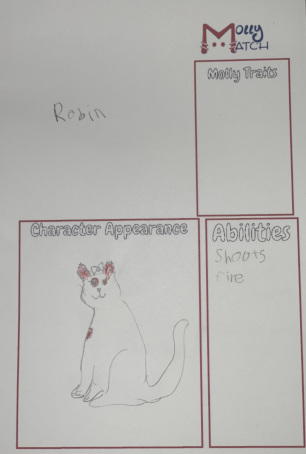 Molly
MATCH
Robin
Molly Traits
Character Appearance
Abilities
Shoots
fire